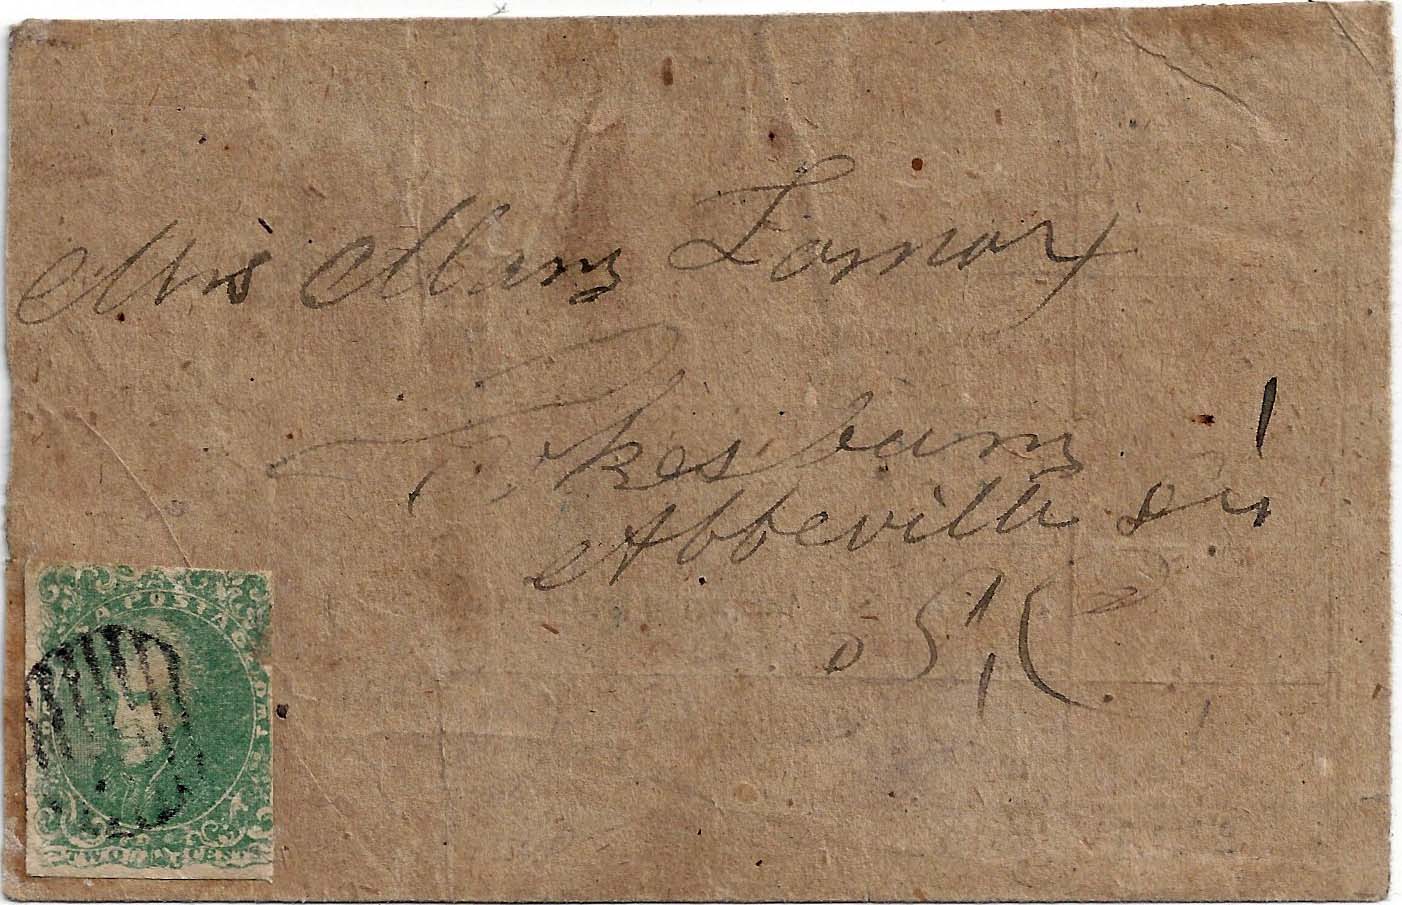 Mrs Mary Lomax
Cokesbury
Abbeville Dist
S, C
POSTAGE
TWO CENTS